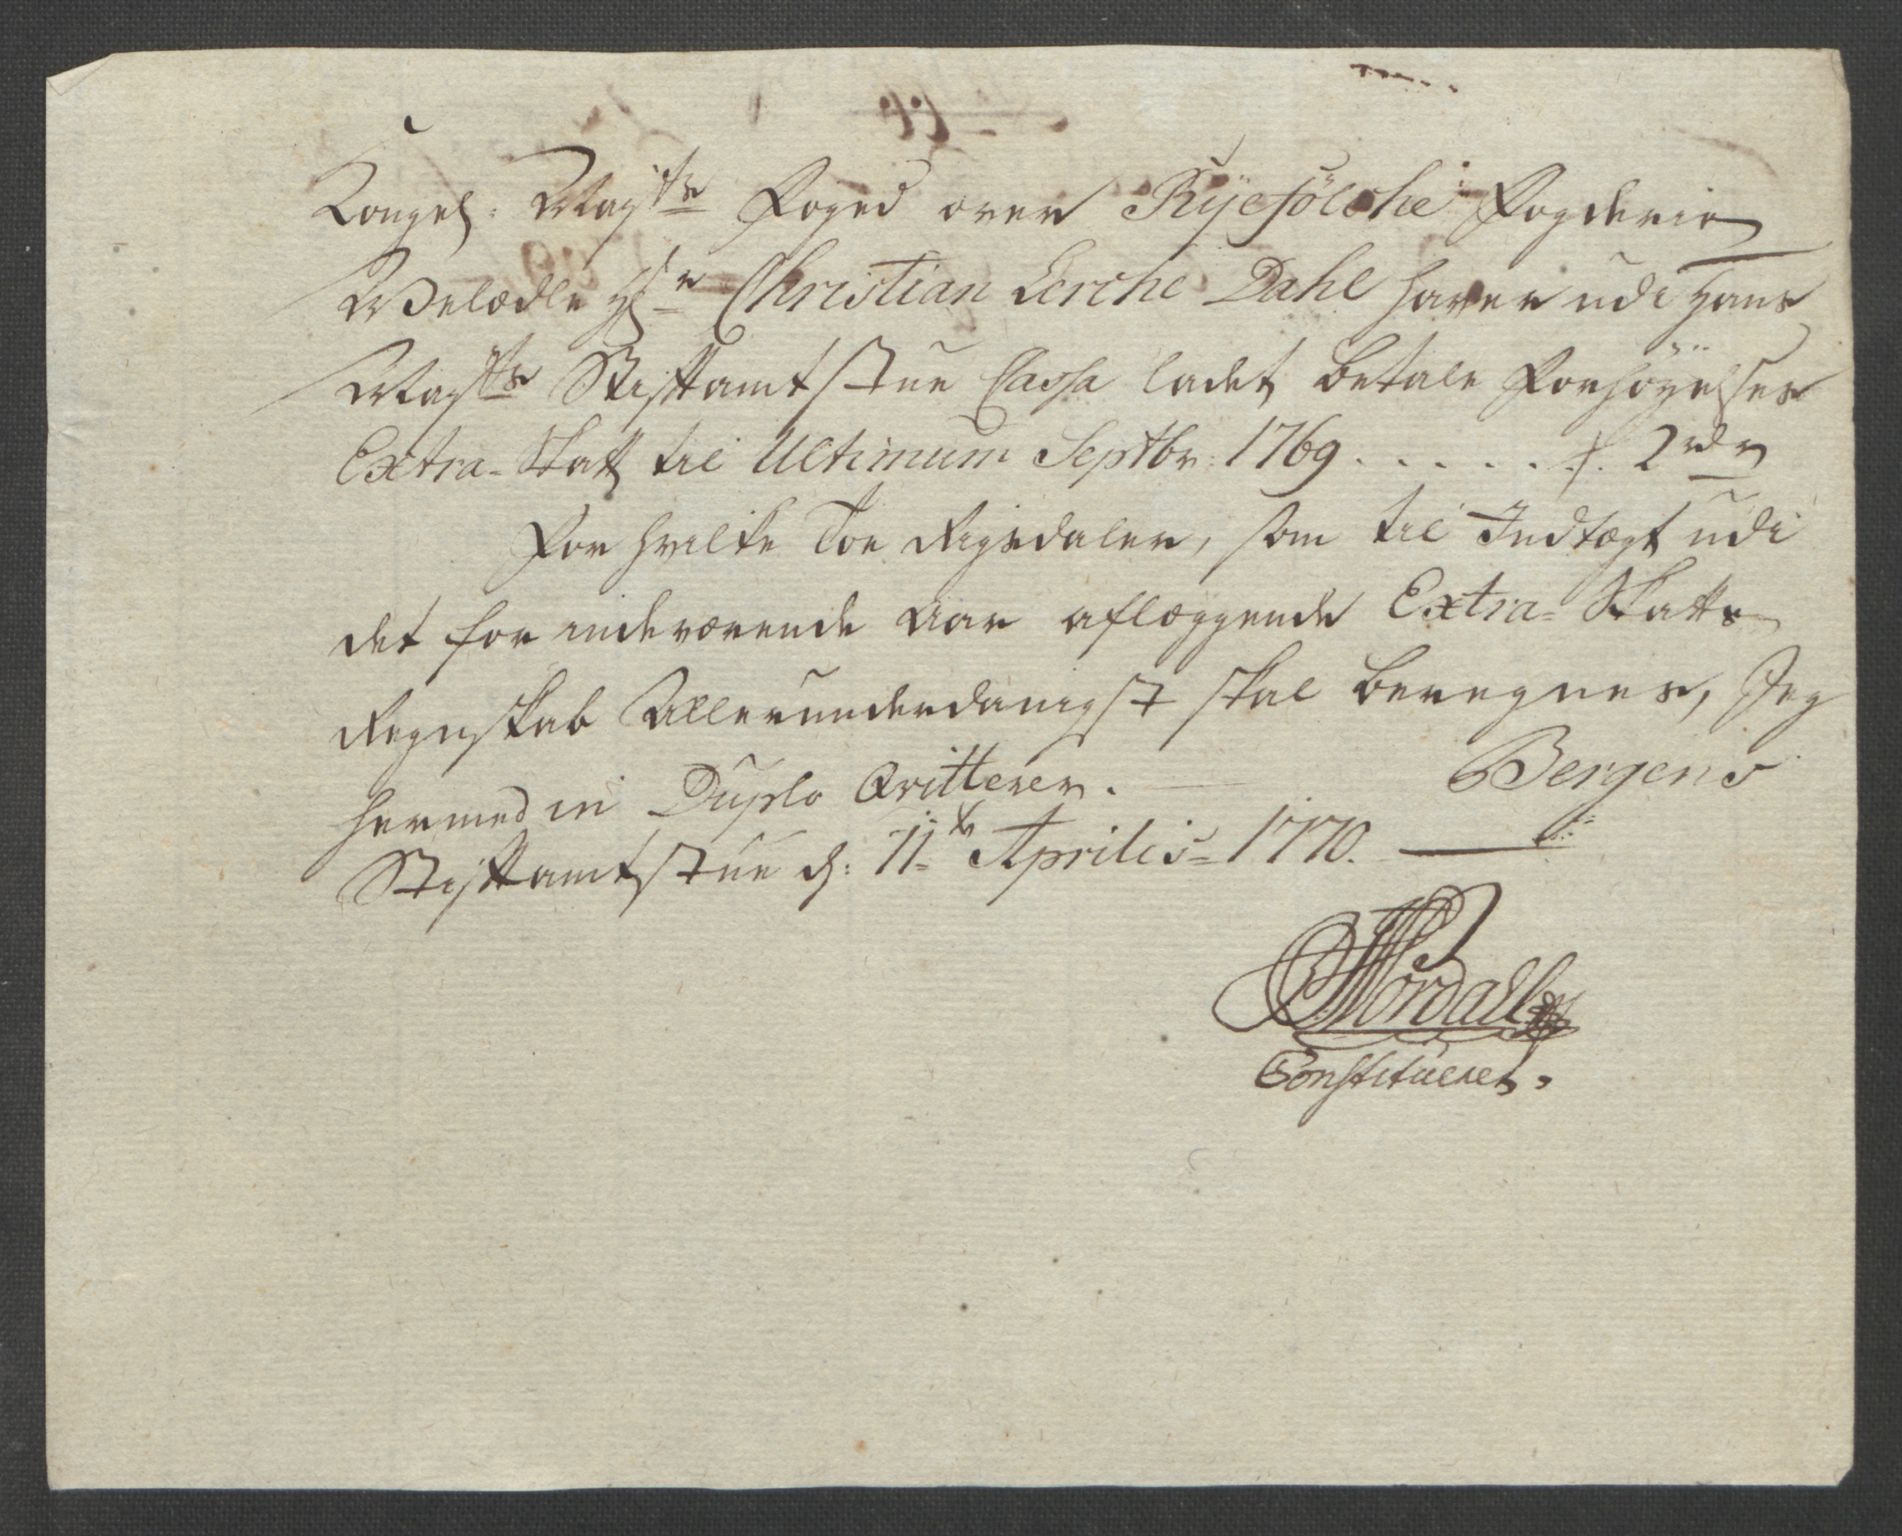 Kongel: Mayts Foged over Ryefölche Fogderie
Velædle Hr Christian Lerche Dahl haver udi Hans
Mayts Stiftamtstue Cassa ladet betale Forhöyelses
Extra-Skatt til Ultimum Septbr: 1769 . . . . . . 2 rdr
For hvilke Toe Rigsdaler, som til Indtægt udi
det for indeværende Aar aflæggende Extra-Skatts
Regnskab Allerunderdanigst skal beregnes, Jeg
hermed in Duplo Qvitterer. Bergens
Stiftamtstue d: 11te Aprilis 1770.
Nordahl
Constitueret.